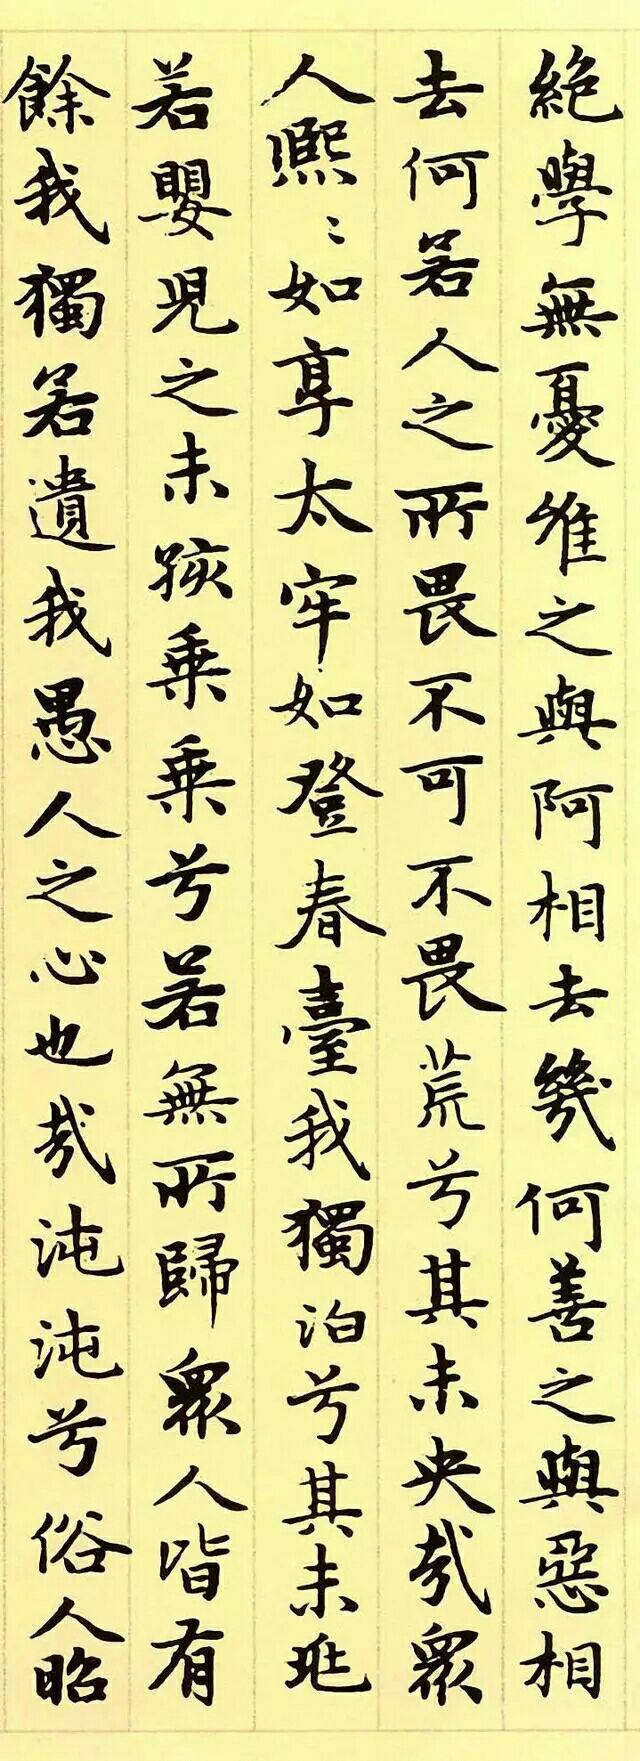 絶學無憂唯之與阿相去幾何善之與惡相
去何若人之所畏不可不畏荒兮其未央哉眾
人熙〻如享太牢如登春臺我獨泊兮其未兆
若嬰兒之未孩乘乘兮若無所歸眾人皆有
餘我獨若遺我愚人之心也哉沌沌兮俗人昭